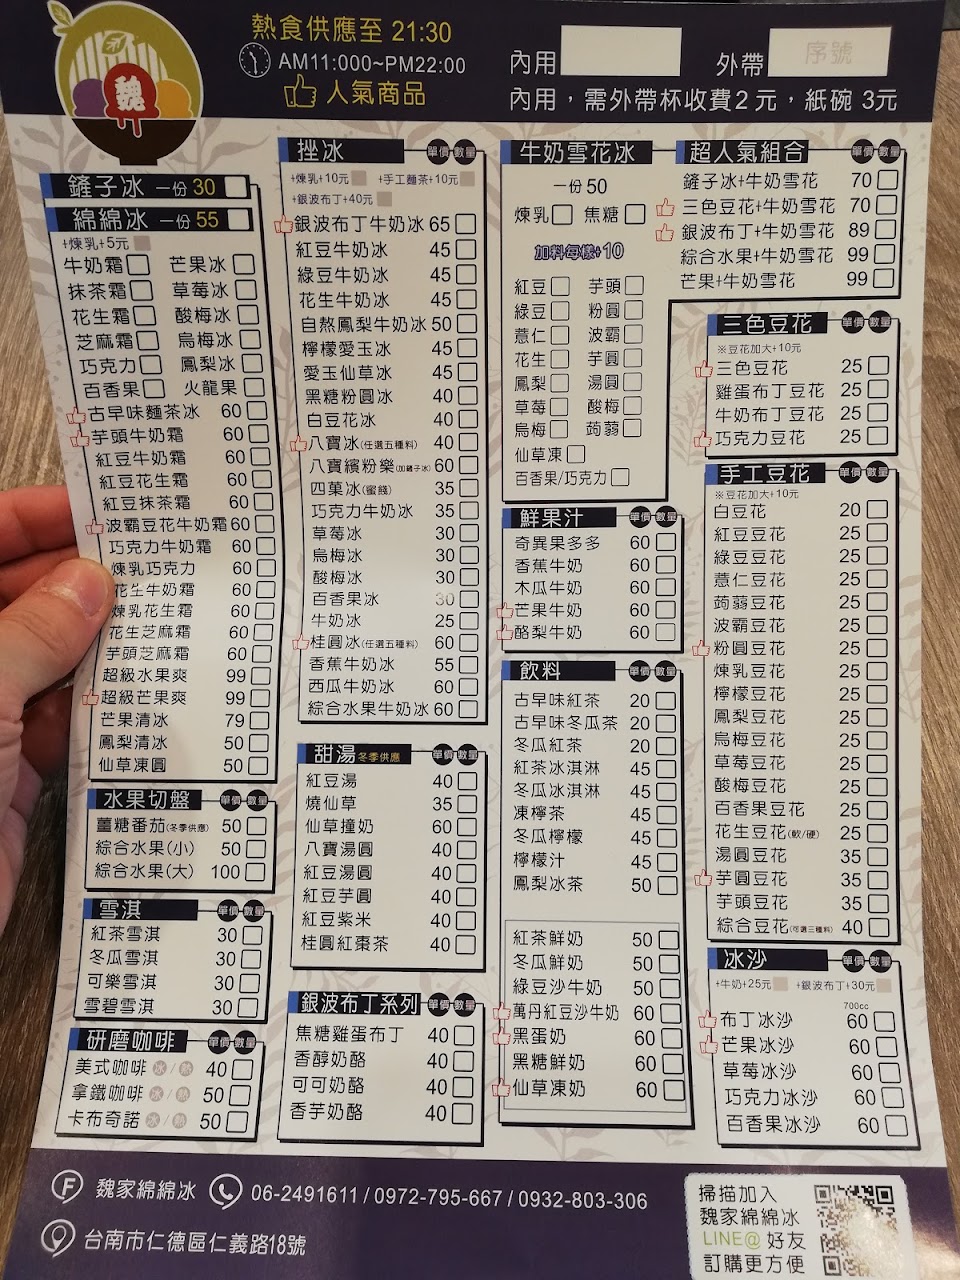 魏
熱食供應至 21:30
AM11:000~PM22:00
人氣商品
內用
外帶
序號
內用，需外帶杯收費2元，紙碗 3元
鏟子冰 一份 30
綿綿冰 一份 55
+煉乳+5元
牛奶霜 芒果冰
抹茶霜 草莓冰
花生霜 酸梅冰
芝麻霜 烏梅冰
巧克力 鳳梨冰
百香果 火龍果
古早味麵茶冰 60
芋頭牛奶霜 60
紅豆牛奶霜 60
紅豆花生霜 60
紅豆抹茶霜 60
波霸豆花牛奶霜 60
巧克力牛奶霜 60
煉乳巧克力 60
花生牛奶霜 60
煉乳花生霜 60
花生芝麻霜 60
芋頭芝麻霜 60
超級水果爽 99
超級芒果爽 99
芒果清冰 79
鳳梨清冰 50
仙草凍圓 50
水果切盤 單價 數量
薑糖番茄(冬季供應) 50
綜合水果(小) 50
綜合水果(大) 100
雪淇 單價 數量
紅茶雪淇 30
冬瓜雪淇 30
可樂雪淇 30
雪碧雪淇 30
研磨咖啡 單價 數量
美式咖啡 冰/熱 40
拿鐵咖啡 冰/熱 50
卡布奇諾 冰/熱 50
挫冰 單價 數量
+煉乳+10元 +手工麵茶+10元
+銀波布丁+40元
銀波布丁牛奶冰 65
紅豆牛奶冰 45
綠豆牛奶冰 45
花生牛奶冰 45
自熬鳳梨牛奶冰 50
檸檬愛玉冰 45
愛玉仙草冰 45
黑糖粉圓冰 40
白豆花冰 40
八寶冰(任選五種料) 40
八寶繽粉樂(加鏟子冰) 60
四菓冰(蜜餞) 35
巧克力牛奶冰 35
草莓冰 30
烏梅冰 30
酸梅冰 30
百香果冰 30
牛奶冰 25
桂圓冰(任選五種料) 60
香蕉牛奶冰 55
西瓜牛奶冰 60
綜合水果牛奶冰 60
甜湯 冬季供應 單價 數量
紅豆湯 40
燒仙草 35
仙草撞奶 60
八寶湯圓 40
紅豆湯圓 40
紅豆芋圓 40
紅豆紫米 40
桂圓紅棗茶 40
銀波布丁系列 單價 數量
焦糖雞蛋布丁 40
香醇奶酪 40
可可奶酪 40
香芋奶酪 40
牛奶雪花冰
一份 50
煉乳 焦糖
加料每樣+10
紅豆 芋頭
綠豆 粉圓
薏仁 波霸
花生 芋圓
鳳梨 湯圓
草莓 酸梅
烏梅 蒟蒻
仙草凍
百香果/巧克力
鮮果汁 單價 數量
奇異果多多 60
香蕉牛奶 60
木瓜牛奶 60
芒果牛奶 60
酪梨牛奶 60
飲料 單價 數量
古早味紅茶 20
古早味冬瓜茶 20
冬瓜紅茶 20
紅茶冰淇淋 45
冬瓜冰淇淋 45
凍檸茶 45
冬瓜檸檬 45
檸檬汁 45
鳳梨冰茶 50
紅茶鮮奶 50
冬瓜鮮奶 50
綠豆沙牛奶 50
萬丹紅豆沙牛奶 60
黑蛋奶 60
黑糖鮮奶 60
仙草凍奶 60
超人氣組合 單價 數量
鏟子冰+牛奶雪花 70
三色豆花+牛奶雪花 70
銀波布丁+牛奶雪花 89
綜合水果+牛奶雪花 99
芒果+牛奶雪花 99
三色豆花 單價 數量
※豆花加大+10元
三色豆花 25
雞蛋布丁豆花 25
牛奶布丁豆花 25
巧克力豆花 25
手工豆花 單價 數量
※豆花加大+10元
白豆花 20
紅豆豆花 25
綠豆豆花 25
薏仁豆花 25
蒟蒻豆花 25
波霸豆花 25
粉圓豆花 25
煉乳豆花 25
檸檬豆花 25
鳳梨豆花 25
烏梅豆花 25
草莓豆花 25
酸梅豆花 25
百香果豆花 25
花生豆花(軟/硬) 25
湯圓豆花 35
芋圓豆花 35
芋頭豆花 35
綜合豆花(可選三種料) 40
冰沙 單價 數量
+牛奶+25元 +銀波布丁+30元
700cc
布丁冰沙 60
芒果冰沙 60
草莓冰沙 60
巧克力冰沙 60
百香果冰沙 60
魏家綿綿冰 06-2491611 / 0972-795-667 / 0932-803-306
台南市仁德區仁義路18號
掃描加入
魏家綿綿冰
LINE@ 好友
訂購更方便